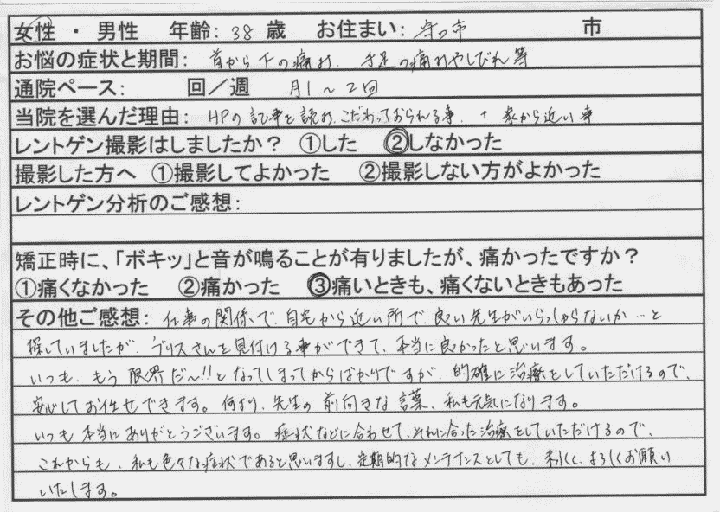 女性 ・ 男性　年齢：38 歳　お住まい：守口市　市
お悩の症状と期間：首から下の痛み、手足の痛みやしびれ等
通院ペース：　回／週　月1～2回
当院を選んだ理由：HPの記事を読み、こだわっておられる事、＋ 家から近い事
レントゲン撮影はしましたか？ ①した　②しなかった
撮影した方へ ①撮影してよかった　②撮影しない方がよかった
レントゲン分析のご感想：
矯正時に、「ボキッ」と音が鳴ることが有りましたが、痛かったですか？
①痛くなかった　②痛かった　③痛いときも、痛くないときもあった
その他ご感想：仕事の関係で、自宅から近い所で良い先生がいらっしゃらないか…と
探していましたが、ブリスさんを見付ける事ができて、本当に良かったと思います。
いつも、もう 限界だ～!!となってしまってからばかりですが、的確に治療をしていただけるので、
安心してお任せできます。何より、先生の前向きな言葉、私も元気になります。
いつも本当にありがとうございます。症状などに合わせて、それに合った治療をしていただけるので、
これからも、私も色々な症状であると思いますし、定期的なメンテナンスとしても、末永く、よろしくお願い
いたします。